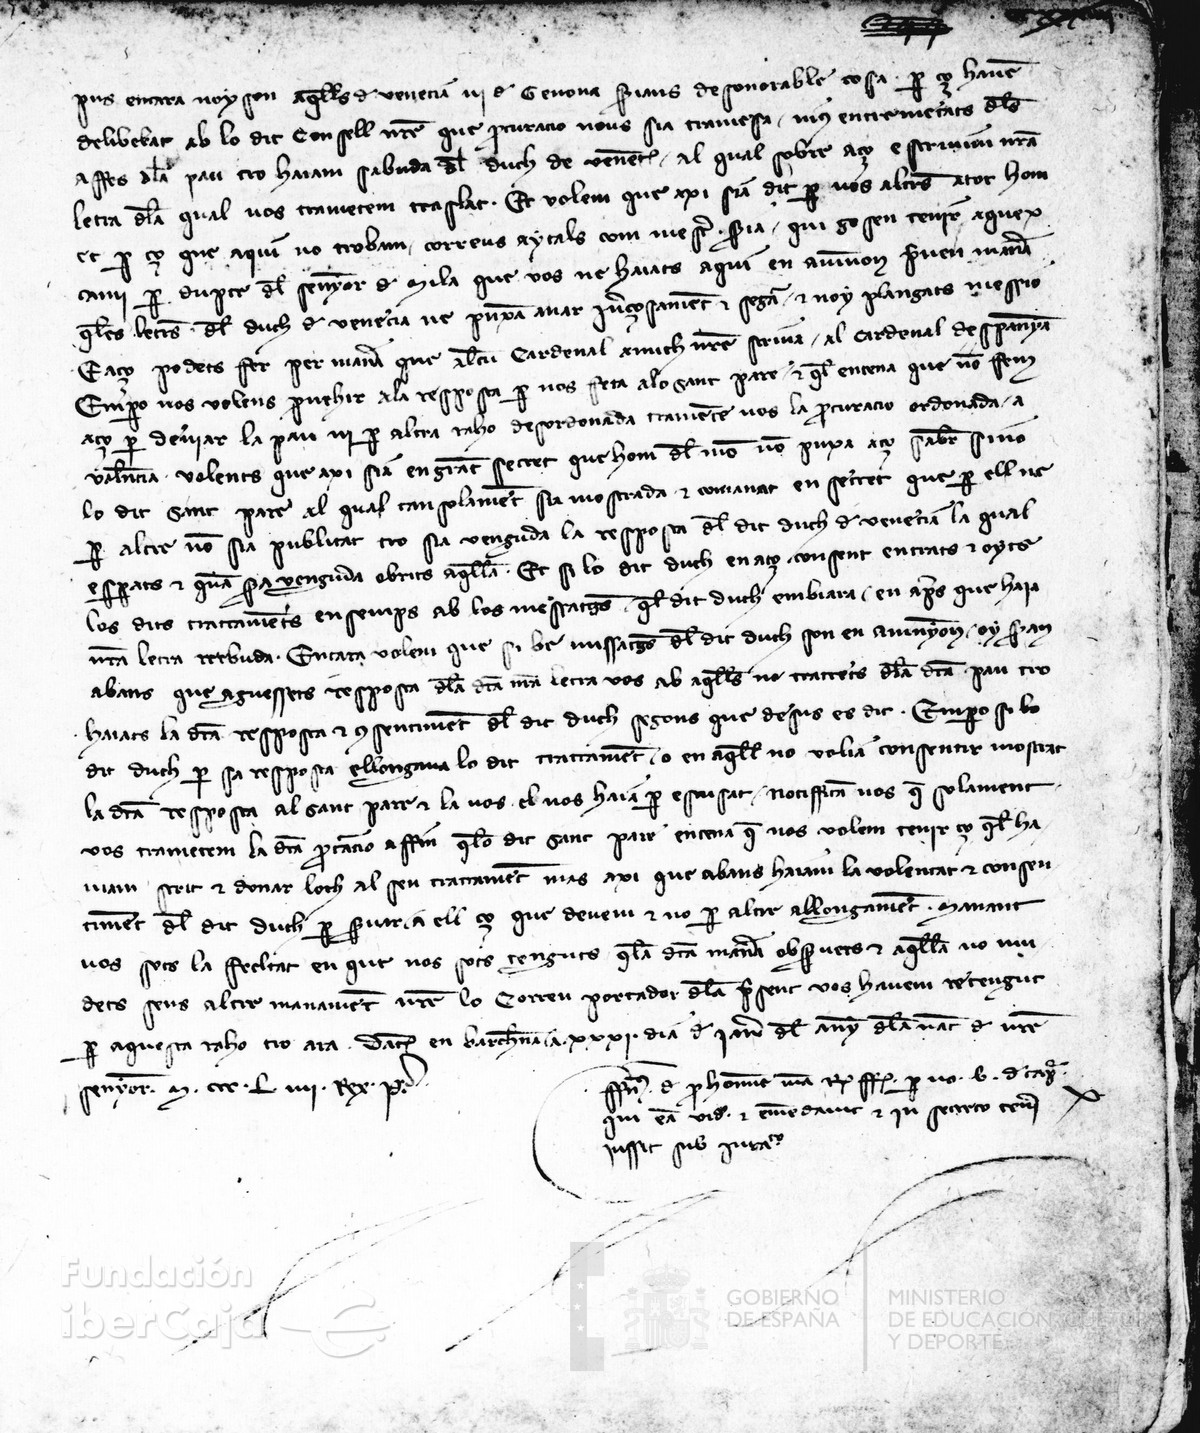 pus encara noy son aqlls de venecia ni d Genova p̃iaus desonorable cosa · per ço havẽ
deliberat ab lo dit Consell nr̃e que procuracio nous sia tramesa / niʼus entremetats dls̃
affers dla pau tro haiam sabuda dl duch de venec̃ / al qual sobre aço escrivim nr̃a
letra dla qual vos trametem traslat · Et volem que axi sia dit per vos als altres a tot hom
et per ço que aqui no trobam / correus aytals com mester sia / qui gosen tenir aquex
cami per dupte dl senyor d Mila que vos ne haiats aqui en avinyon
qles letres · dl duch d venecia ne puxa anar / & noy plangats messio
E aço podets fer per manera que alcun Cardenal amich nr̃e scriva / al Cardenal despanya
Empo nos volens provehir a la resposta per nos feta alo sant pare / & ql entena que nõ fem
aço per deviar la pau ni per altra raho desordonada trametem vos la procuracio ordonada / a
valencia · volents que axi sia en gran secret que hom dl mon nõ puxa aço saber sino
lo dit sant pare al qual tan solament sia mostrada & comanat en secret que per ell ne
per altre nõ sia publicat tro sia venguda la resposta dl dit duch d venecia la qual
esperats & quan sera venguda obrits aqlla · Et si lo dit duch en aço consent entrats & oyts
los dits tractaments ensemps ab los messatgers / ql dit duch embiara / en apres que haia
nr̃a letra reebuda · Encara volem que si be missatgers dl dit duch son en avinyon / oy seran
abans que aguessets resposta dla dta nr̃a letra vos ab aqlls no tractets dla dta pau tro
haiats la dta resposta & consentiment dl dit duch segons que desus es dit · Empero si lo
dit duch per sa resposta ellongava lo dit tractament / o en aqll no volia consentir mostrat
la dta resposta al sant pare & la vos el nos haia per escusat / notifficam vos q̃ solament
vos trametem la dta procuracio affin qlo dit sant pare entena q̃ nos volem tenir ço ql ha
viam scrit & donar loch al seu tractament mas axi que abans haiam la volentat & consen
timent dl dit duch per servar a ell ço que devem & no per altre allongament · Manant
vos sots la feeltat en que nos sots tenguts qla dta manera observets & aqlla no mu
dets sens altre manament nr̃e lo Correu portador dla present vos havem retengut
per aquesta raho tro ara · Dat̃ en barchna a xxxi · dia d Janer dl any dla nat̃ d nr̃e
senyor · M · ccc · L iiii · Rex · P̃ ·
ffr̃ · d prohome · per no · G · d cap̃ ·
qui eã vid̃ · & emẽdavit & in secreto teneri
iussit sub iuram̃to
Fundación
iberCaja
GOBIERNO
DE ESPAÑA
MINISTERIO
DE EDUCACIÓN, CULTURA
Y DEPORTE